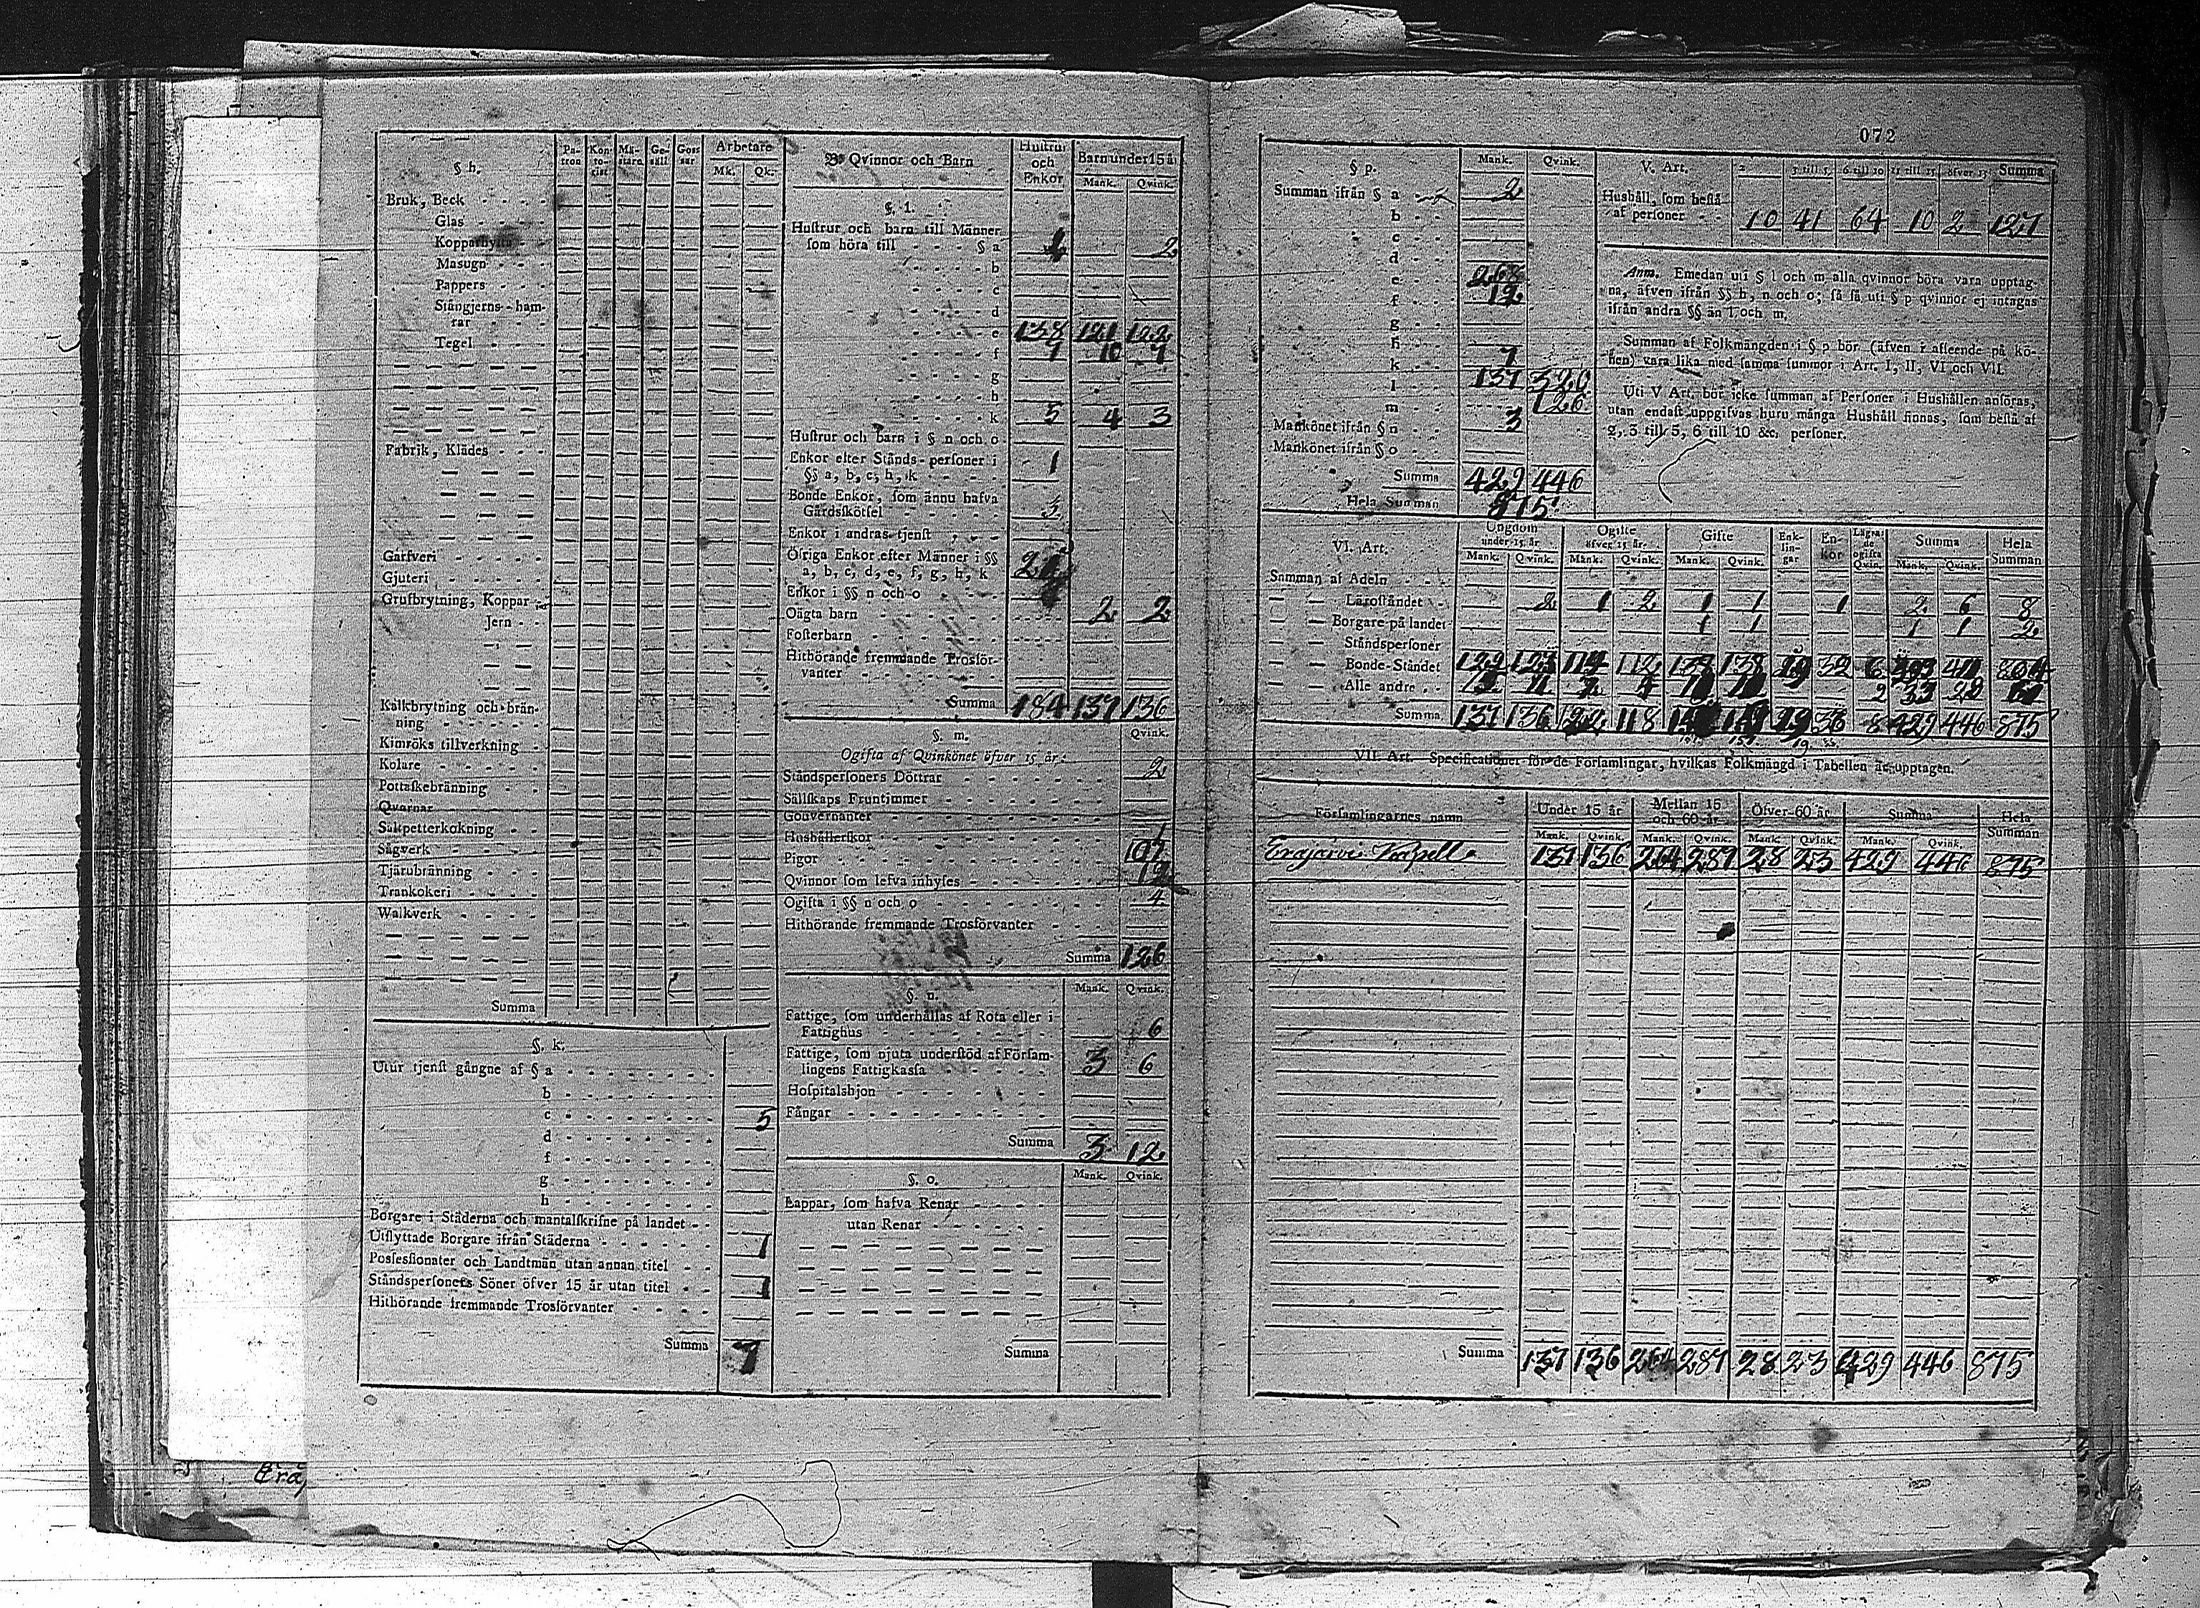 072
§ h. Patron Kontorist Mästare Gesäll Gossar Arbetare
Mk. Qk.
Bruk, Beck
Glas
Kopparhytta
Masugn
Pappers
Stångjerns-hamrar
Tegel
Fabrik, Klädes
Garfveri
Gjuteri
Grufbrytning, Koppar
Jern
Kalkbrytning och brän-
ning
Kimröks tillverkning
Kolare
Pottaskebränning
Qvarnar
Saltpetterkokning
Sågverk
Tjärubränning
Trankokeri
Walkverk
Summa
§. k.
Utur tjenst gångne af § a
b
c 5
d
f
g
h
Borgare i Städerna och mantalskrifne på landet
Utflyttade Borgare ifrån Städerna 1
Possessionater och Landtmän utan annan titel
Ståndspersoners Söner öfver 15 år utan titel 1
Hithörande fremmande Trosförvanter
Summa 7
B Qvinnor och Barn Hustrur och Enkor Barn under 15 år
Mank. Qvink.
§. l.
Hustrur och barn till Männer
som höra till § a 2
b
c
d
e 138 121 122
f 7 10 7
g
h
k 5 4 3
Hustrur och barn i § n och o
Enkor efter Stånds-personer i
§§ a, b, c, h, k 1
Bonde Enkor, som ännu hafva
Gårdsskötsel 3
Enkor i andras tjenst
Öfriga Enkor efter Männer i §§
a, b, c, d, e, f, g, h, k
Enkor i §§ n och o
Oägta barn 2 2
Fosterbarn
Hithörande fremmande Trosför-
vanter
Summa 184 137 136
§. m. Qvink.
Ogifta af Qvinkönet öfver 15 år:
Ståndspersoners Döttrar 2
Sällskaps Fruntimmer
Gouvernanter
Hushållerskor 1
Pigor 107
Qvinnor som lefva inhyses 12
Ogifta i §§ n och o 4
Hithörande fremmande Trosförvanter
Summa 126
§. n. Mank. Qvink.
Fattige, som underhållas af Rota eller i
Fattighus 6
Fattige, som njuta understöd af Försam-
lingens Fattigkassa 3 6
Hospitalshjon
Fångar
Summa 3 12
§. o. Mank. Qvink.
Lappar, som hafva Renar
utan Renar
Summa
§ p. Mank. Qvink.
Summan ifrån § a 2
b
c
d
e 268
f 12
g
h
k 7
l 137 320
m 126
Mankönet ifrån § n 3
Mankönet ifrån § o
Summa 429 446
Hela Summan 875
V. Art. 2 3 till 5 6 till 10 11 till 15 öfver 15 Summa
Hushåll, som bestå
af personer 10 41 64 10 2 127
Anm. Emedan uti § l och m alla qvinnor böra vara upptag-
na, äfven ifrån §§ h, n och o; så få uti § p qvinnor ej intagas
ifrån andra §§ än l och m.
Summan af Folkmängden i § p bör (äfven i afseende på kö-
nen) vara lika med samma summor i Art. I, II, VI och VII.
Uti V Art. bör icke summan af Personer i Hushållen anföras,
utan endast uppgifvas huru många Hushåll finnas, som bestå af
2, 3 till 5, 6 till 10 &c. personer.
VI. Art. Ungdom under 15 år Ogifte öfver 15 år Gifte Enklingar Enkor Lägrade ogifta Qvin. Summa Hela Summan
Mank. Qvink. Mank. Qvink. Mank. Qvink. Mank. Qvink.
Summan af Adeln
Läroståndet 2 1 2 1 1 1 2 6 8
Borgare på landet 1 1 1 1 2
Ståndspersoner
Bonde-Ståndet 112 138 32 6
Alle andre 2 33
Summa 137 136 122 118 19 38 8 429 446 875
VII. Art. Specificationer för de Församlingar, hvilkas Folkmängd i Tabellen är upptagen.
Församlingarnes namn Under 15 år Mellan 15 och 60 år Öfver 60 år Summa Hela Summan
Mank. Qvink. Mank. Qvink. Mank. Qvink. Mank. Qvink.
Erajärvi Kapell 137 136 264 287 28 23 429 446 875
Summa 137 136 264 287 28 23 429 446 875
Erä